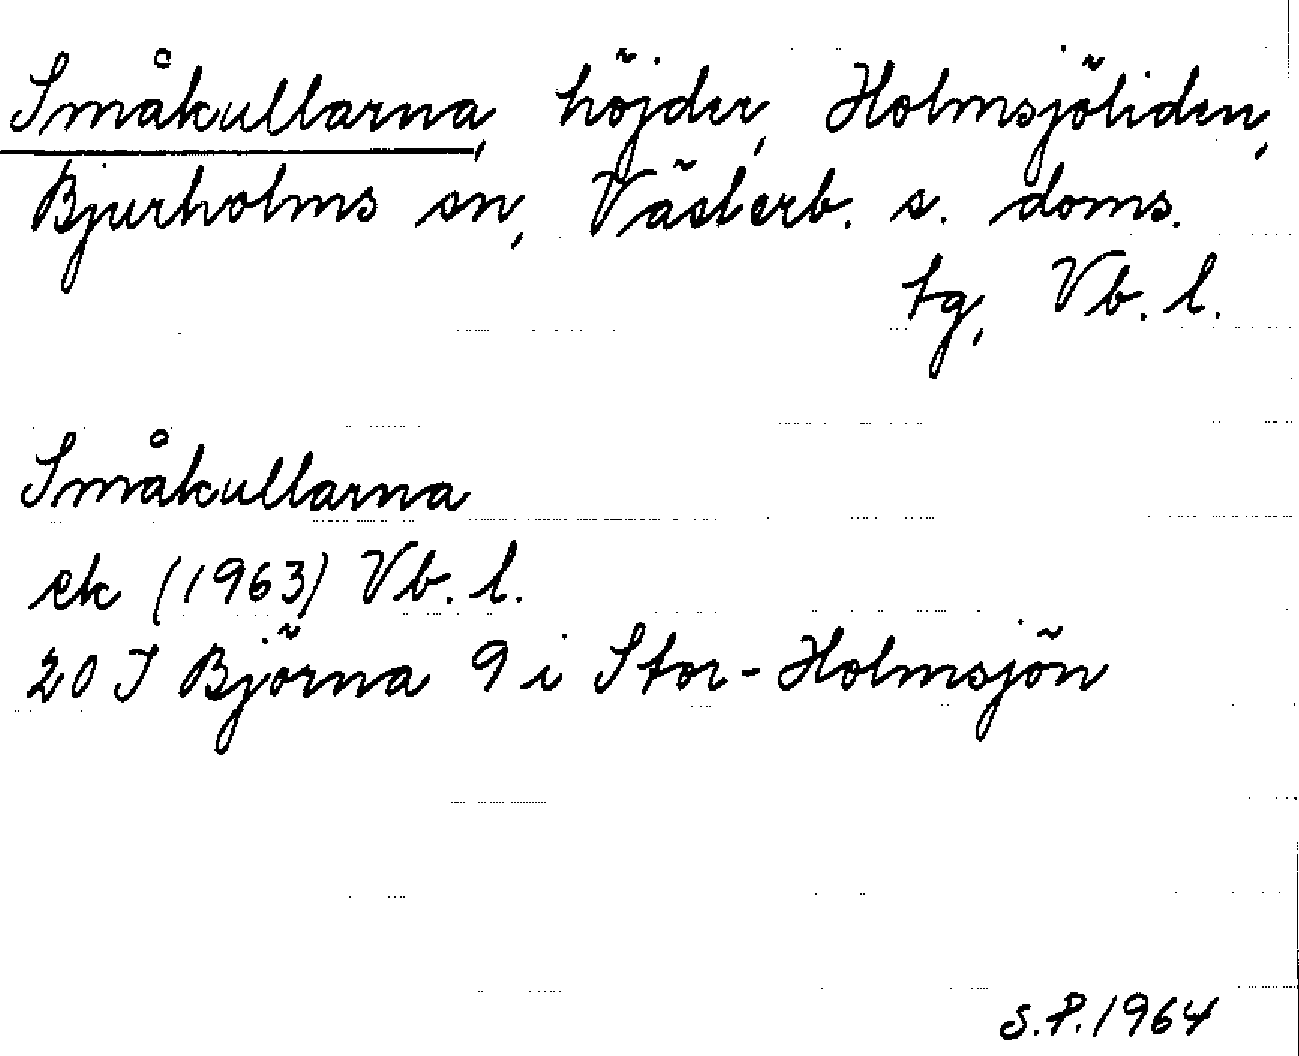 Småkullarna, höjder, Holmsjöliden,
Bjurholms sn, Västerb. s. doms.
tg, Vb. l.
Småkullarna
ek (1963) Vb. l.
20 I Björna 9 i Stor-Holmsjön
S.P. 1964